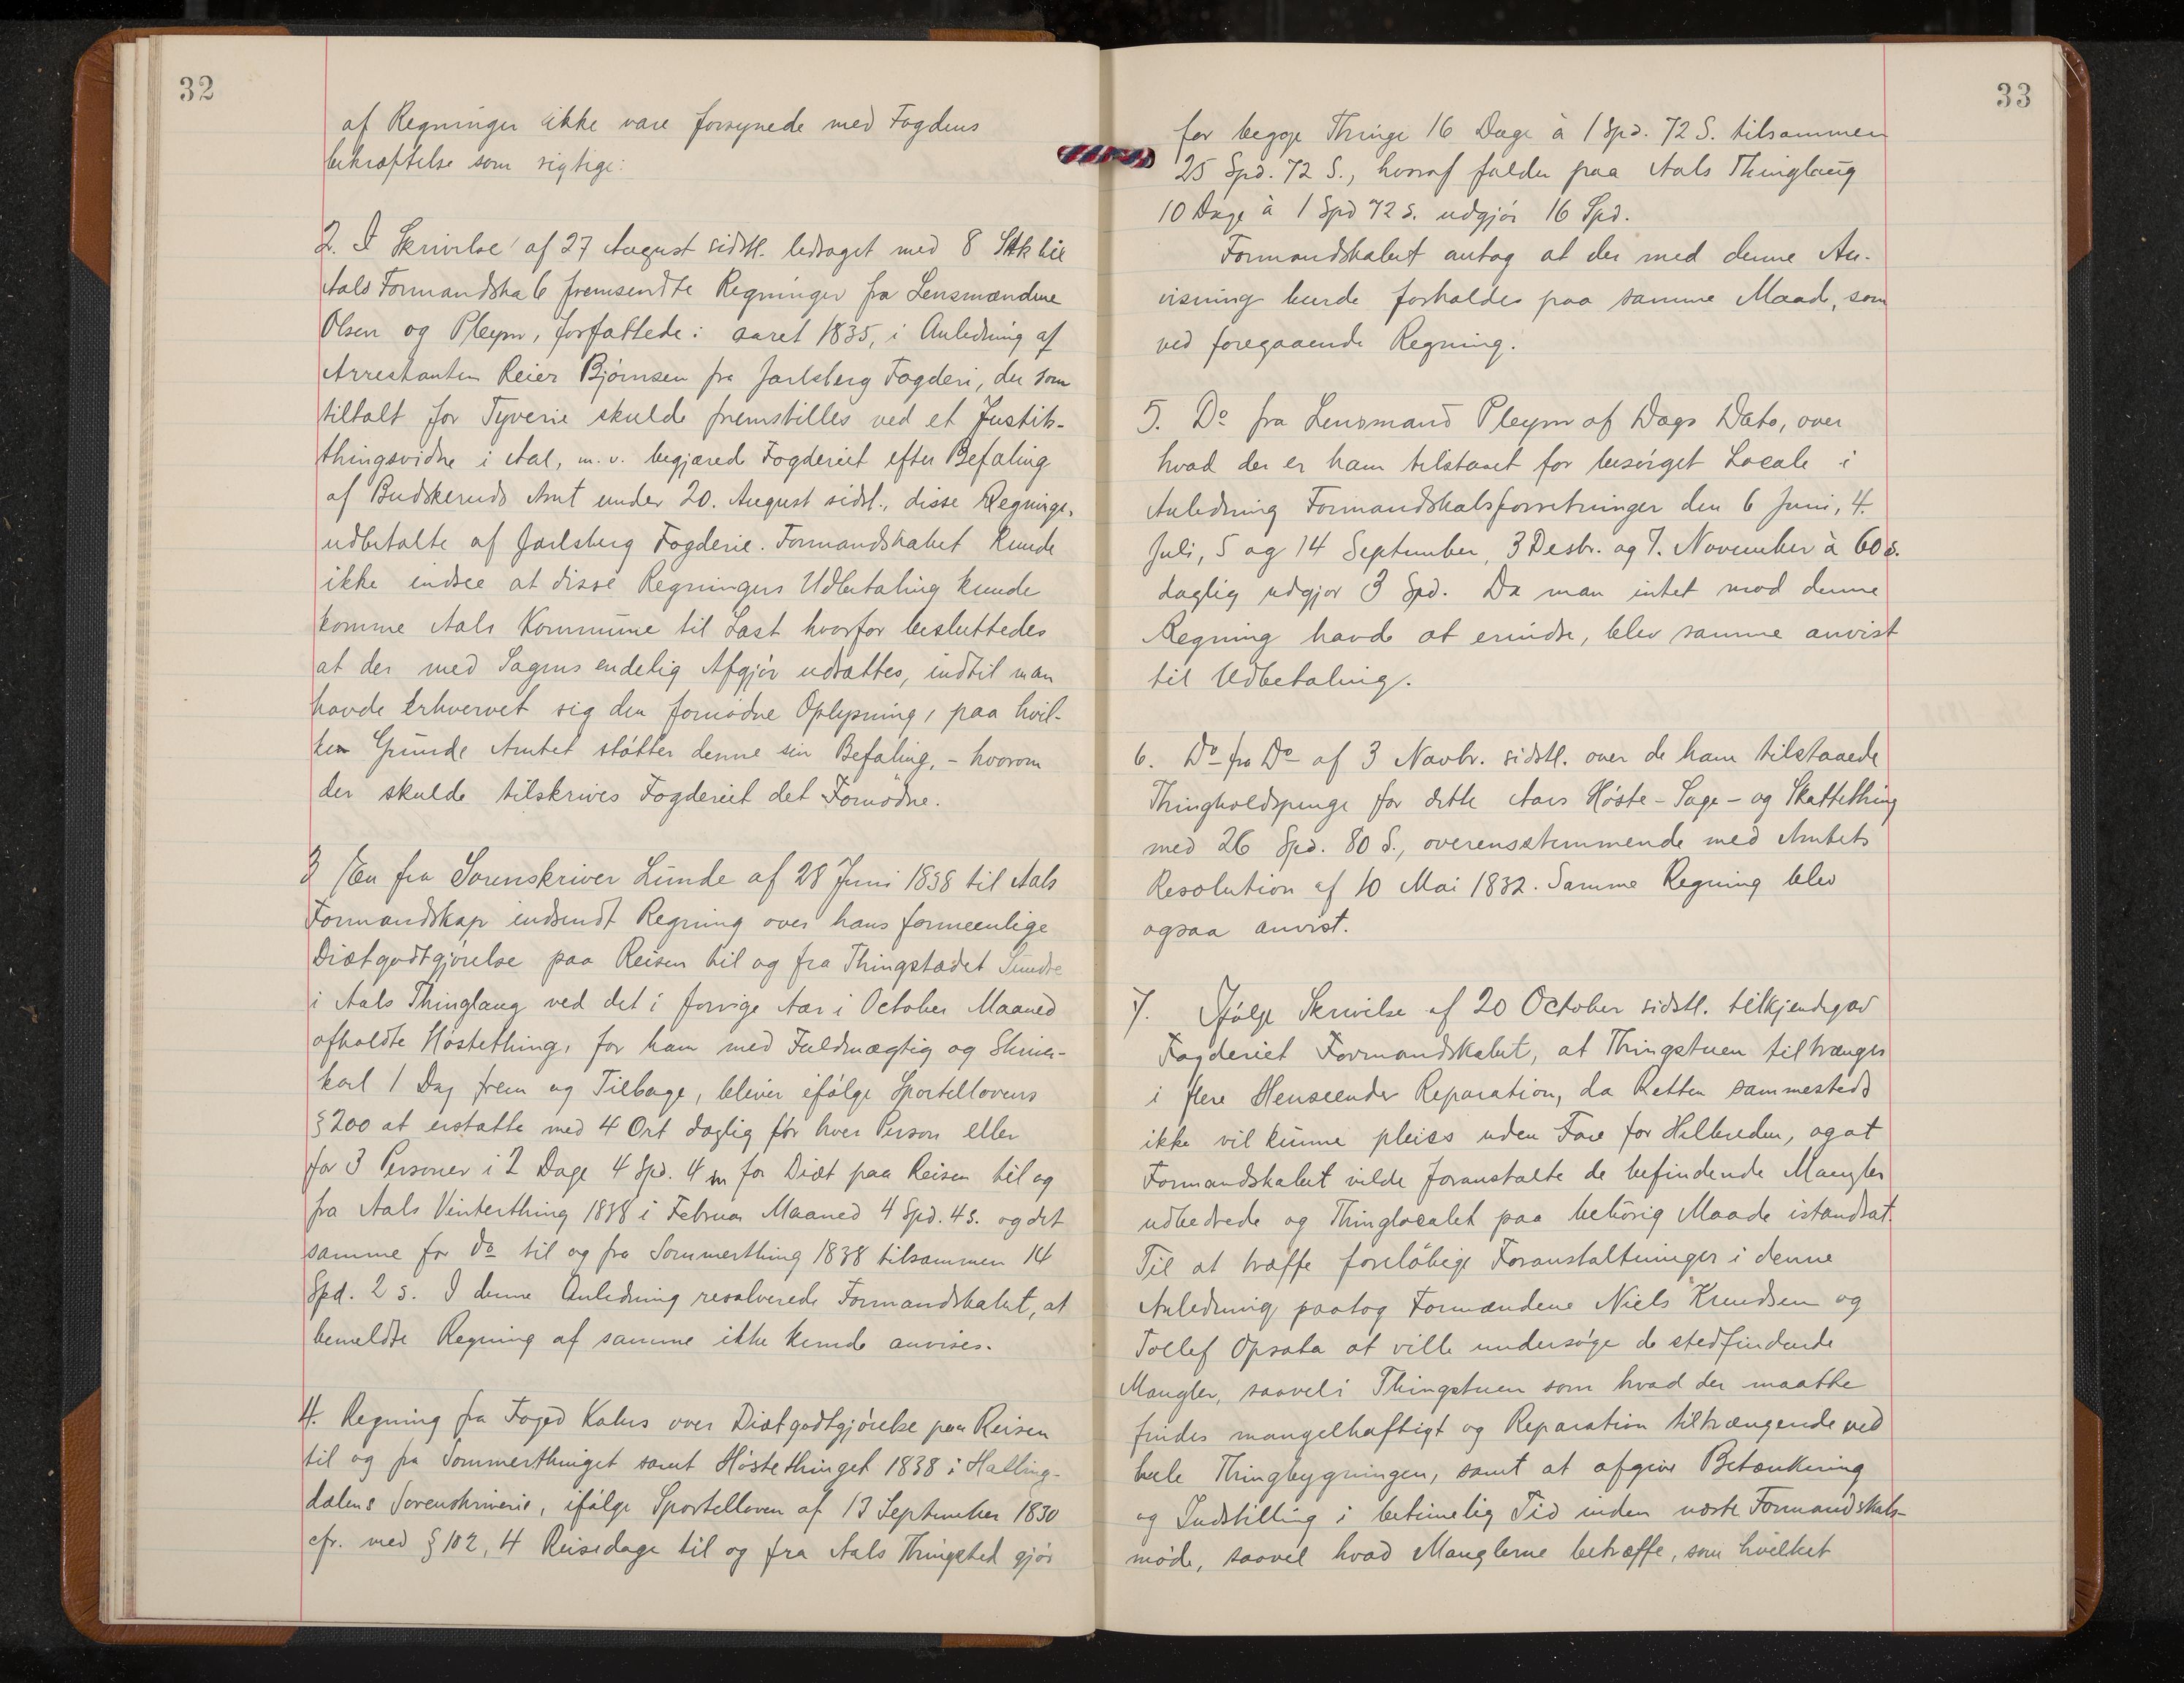 32
af Regninger ikke vare forsynede med Fogdens
bekræftelse som rigtige:
2. I Skrivelse af 27 August sidstl. ledsaget med 8 Stk til
Aals Formandska 6 fremsendte Regninger fra Lensmændene
Olsen og Pleym, forfattede i aaret 1835, i Anledning af
Arrestanten Reier Bjørnsen fra Jarlsberg Fogderi, der som
tiltalt for Tyverie skulde fremstilles ved et Justits-
thingsvidne i Aal, m.v. begjæred Fogderiet efter Befaling
af Budskeruds Amt under 20. August sidstl., disse Regninge.
udbetalte af Jarlsberg Fogderie. Formandskabet kunde
ikke indsee at disse Regningers Udbetaling kunde
komme Aals Kommune til Last hvorfor besluttedes
at der med Sagens endelig Afgjör udsættes, indtil man
havde erhvervet sig den fornødne Oplysning, paa hvil-
ken Grunde Amtet støtter denne sin Befaling, - hvorom
der skulde tilskrives Fogderiet det Fornødne.
3 /En fra Sorenskriver Lunde af 28 Juni 1838 til Aals
Formandskap indsendt Regning over hans formeenlige
Diætgodtgjörelse paa Reisen til og fra Thingstædet Sundre
i Aals Thinglaug ved det i forrige Aar i October Maaned
afholdte Høstething, for ham med Fuldmægtig og Skriver-
karl 1 Dag frem og Tilbage, bliver ifølge Sportellovens
§ 200 at erstatte med 4 Ort daglig før hver Person eller
for 3 Personer i 2 Dage 4 Spd. 4 m for Diæt paa Reisen til og
fra Aals Vinterthing 1838 i Februar Maaned 4 Spd. 4 s. og det
samme for do til og fra Sommerthing 1838 tilsammen 14
Spd. 2 s. I denne Anledning resolverede Formandskabet, at
bemeldte Regning af samme ikke kunde anvises.
4. Regning fra Foged Kahrs over Diætgodtgjörelse paa Reisen
til og fra Sommerthinget samt Høstethinget 1838 i Halling-
dalens Sorenskriverie, ifølge Sportelloven af 13 September 1830
cfr. med § 102, 4 Reisedage til og fra Aals Thingsted gjör
33
for begge Thinge 16 Dage à 1 Spd. 72 S. tilsammen
25 Spd. 72 S., hvoraf falder paa Aals Thinglaug
10 Dage à 1 Spd 72 s. udgjör 16 Spd.
Formandskabet antog at der med denne An-
visning burde forholdes paa samme Maade, som
ved foregaaende Regning.
5. Do fra Lensmand Pleym af Dags Dato, over
hvad der er ham tilstaaet for besørget Locale i
Anledning Formandskabsforretninger den 6 Juni, 4.
Juli, 5 og 14 September, 3 Desbr. og 7. November à 60 s.
daglig udgjør 3 Spd. Da man intet mod denne
Regning havde at erindre, blev samme anvist
til Udbetaling.
6. Do fra Do af 3 Novbr. sidstl. over de ham tilstaaede
Thingholdspenge for dette Aars Høste-Sage- og Skattething
med 26 Spd. 80 S., overensstemmende med Amtets
Resolution af 10 Mai 1832. Samme Regning blev
ogsaa anvist.
7. Ifølge Skrivelse af 20 October sidstl. tilkjendegav
Fogderiet Formandskabet, at Thingstuen tiltrænger
i flere Henseender Reparation, da Retten sammesteds
ikke vil kunne pleies uden Fare for Helbreden, og at
Formandskabet vilde foranstalte de befindende Mangler
udbedrede og Thinglocalet paa behörig Maade istandsat.
Til at træffe foreløbige Foranstaltninger i denne
Anledning paatog Formændene Niels Knudsen og
Tollef Opsata at ville undersøge de stedfindende
Mangler, saavel i Thingstuen som hvad der maatte
findes mangelhaftigt og Reparation tiltrængende ved
hele Thingbygningen, samt at afgive Betænkning
og Indstilling i betimelig Tid inden næste Formandskabs-
møde, saavel hvad Manglerne betræffe, som hvilket